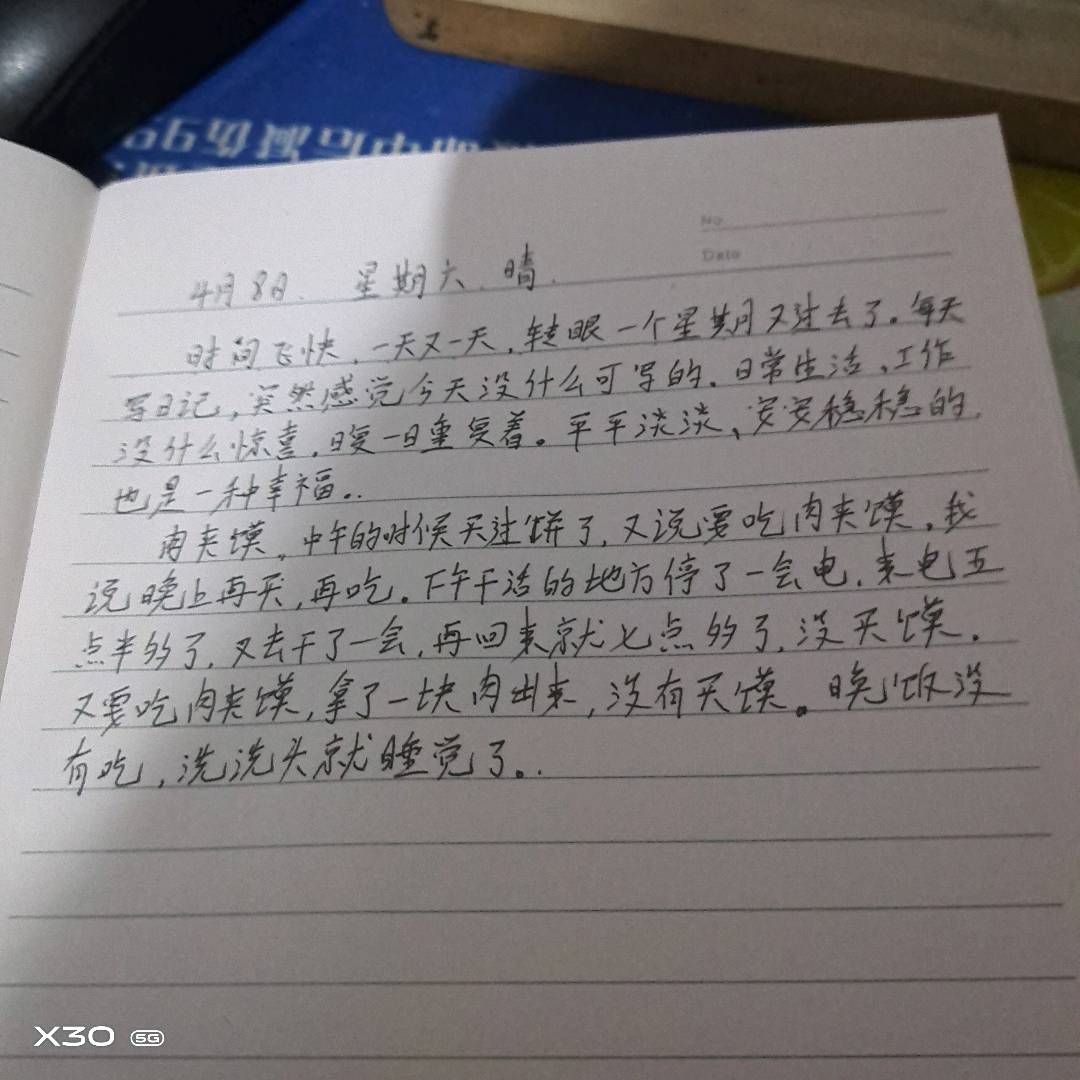 No
Date
4月8日. 星期六. 晴.
时间飞快,一天又一天,转眼一个星期又过去了。每天
写日记,突然感觉今天没什么可写的.日常生活、工作
没什么惊喜,日复一日重复着。平平淡淡、安安稳稳的.
也是一种幸福..
肉夹馍。中午的时候买过饼了,又说要吃肉夹馍,我
说晚上再买,再吃。下午干活的地方停了一会电,来电五
点半的了,又去干了一会,再回来就七点的了,没买馍.
又要吃肉夹馍,拿了一块肉出来,没有买馍。晚饭没
有吃,洗洗头就睡觉了..
X30 5G